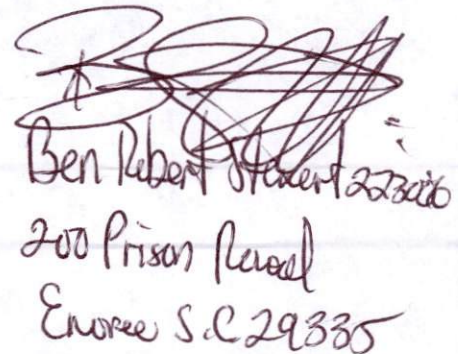 Ben Robert Stewert
200 Prison Road
Enoree S.C 29335